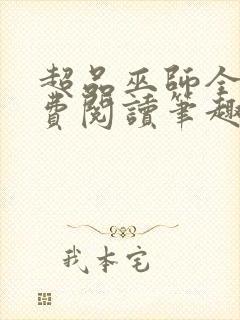 超品巫師全
費閱讀筆趣
我本宅